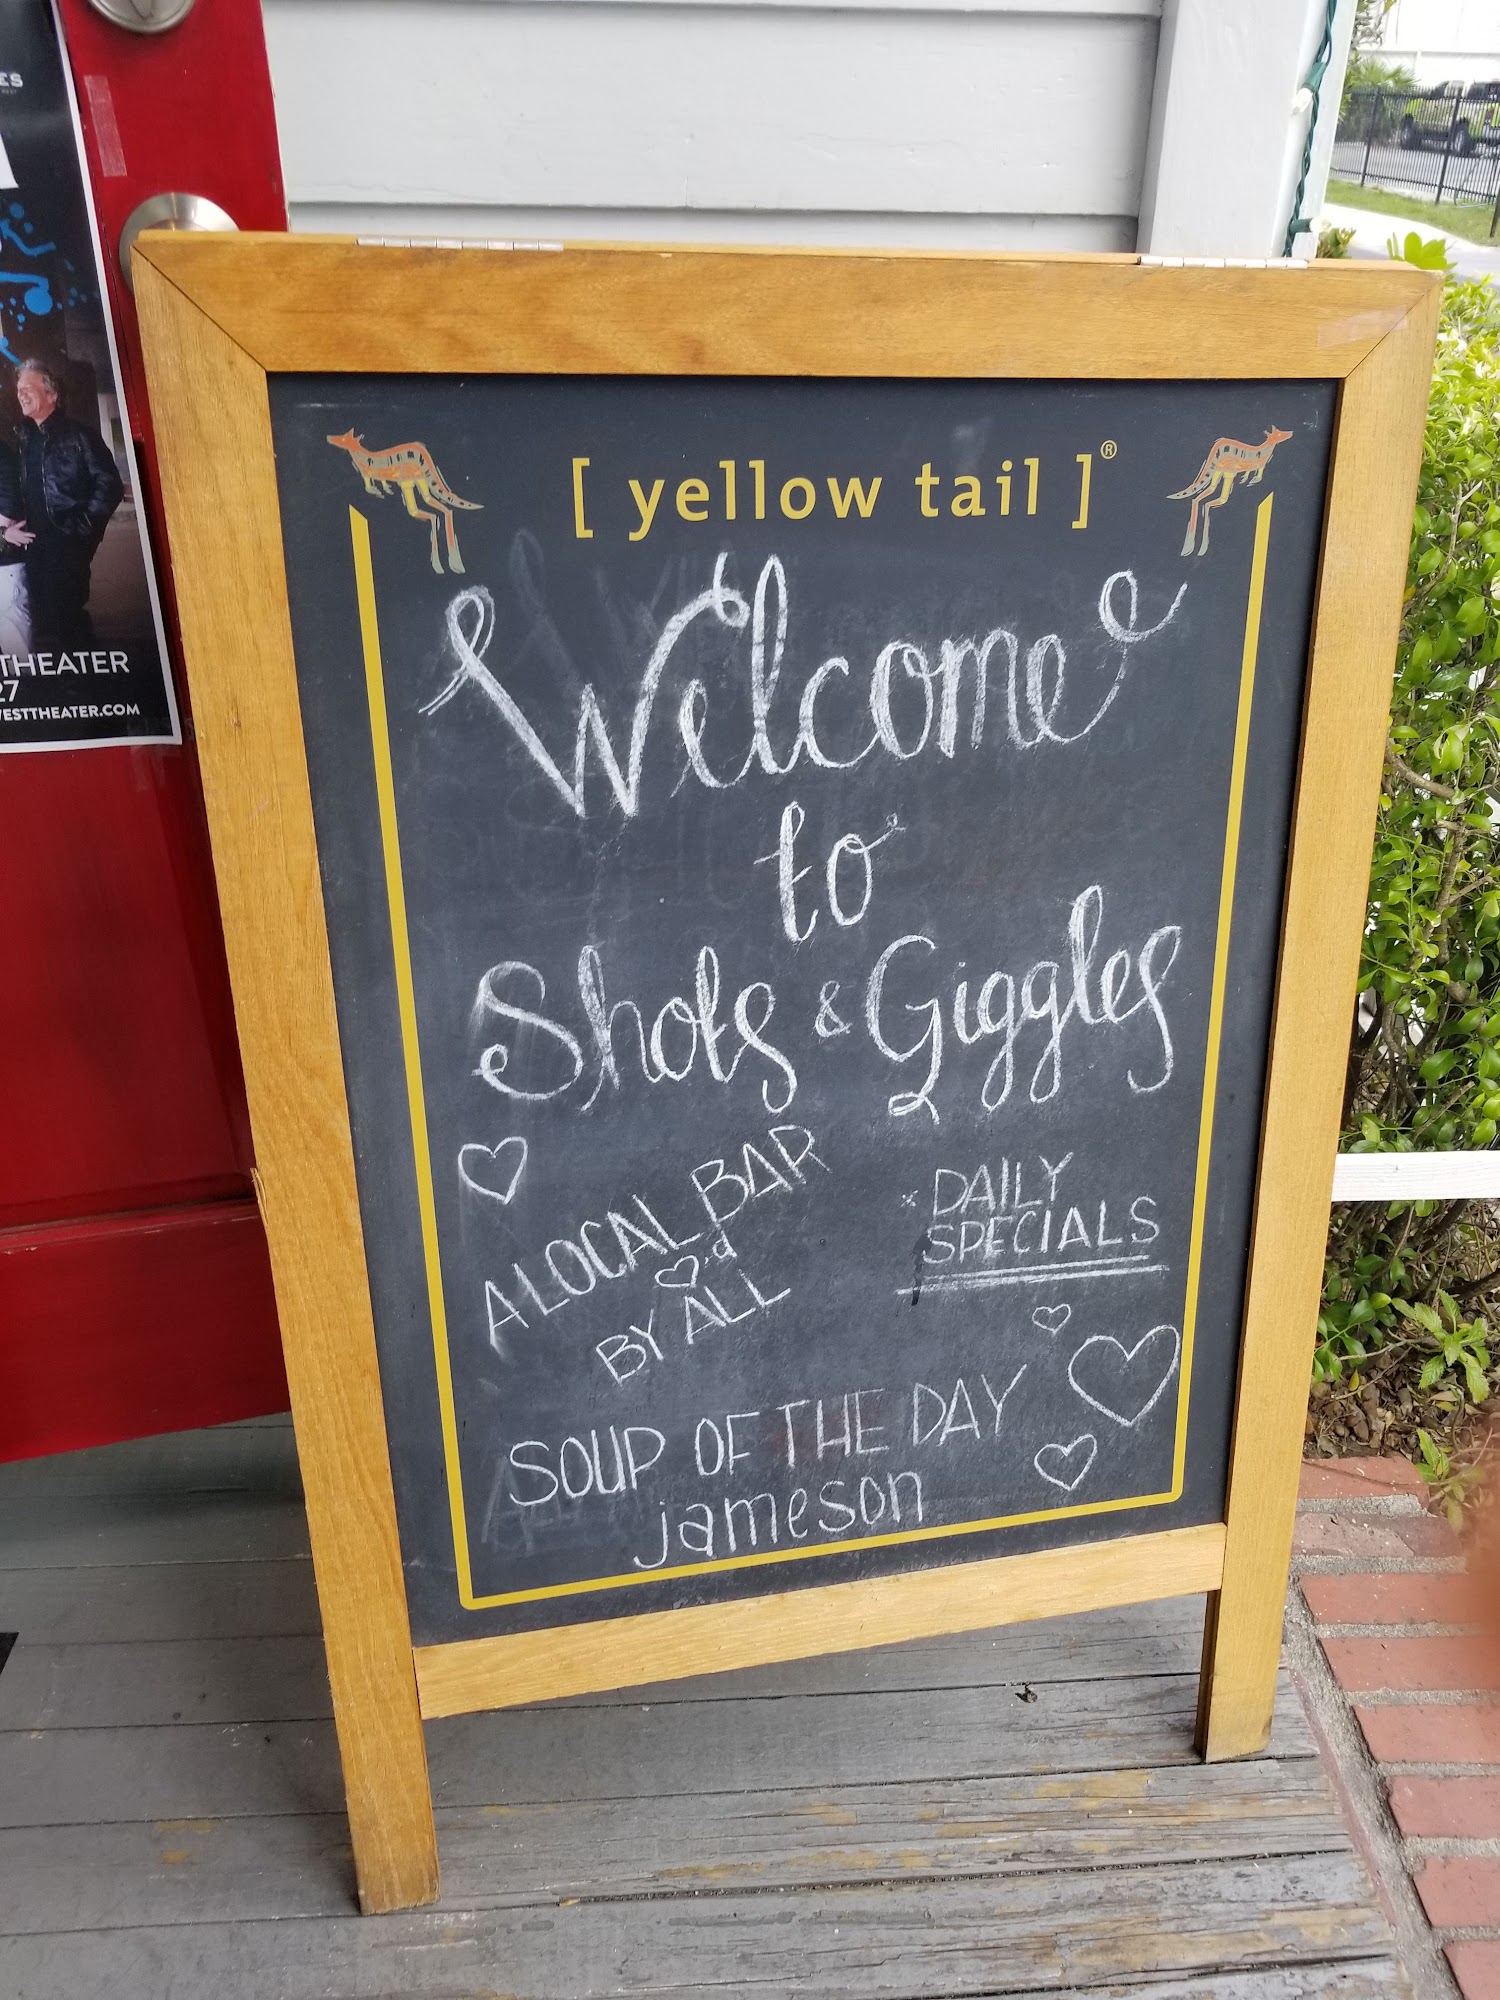 [ yellow tail ]®
Welcome
to
Shots & Giggles
A LOCAL BAR
♡'d
BY ALL
DAILY
SPECIALS
SOUP OF THE DAY
jameson
THEATER
27
ESTTHEATER.COM
ES